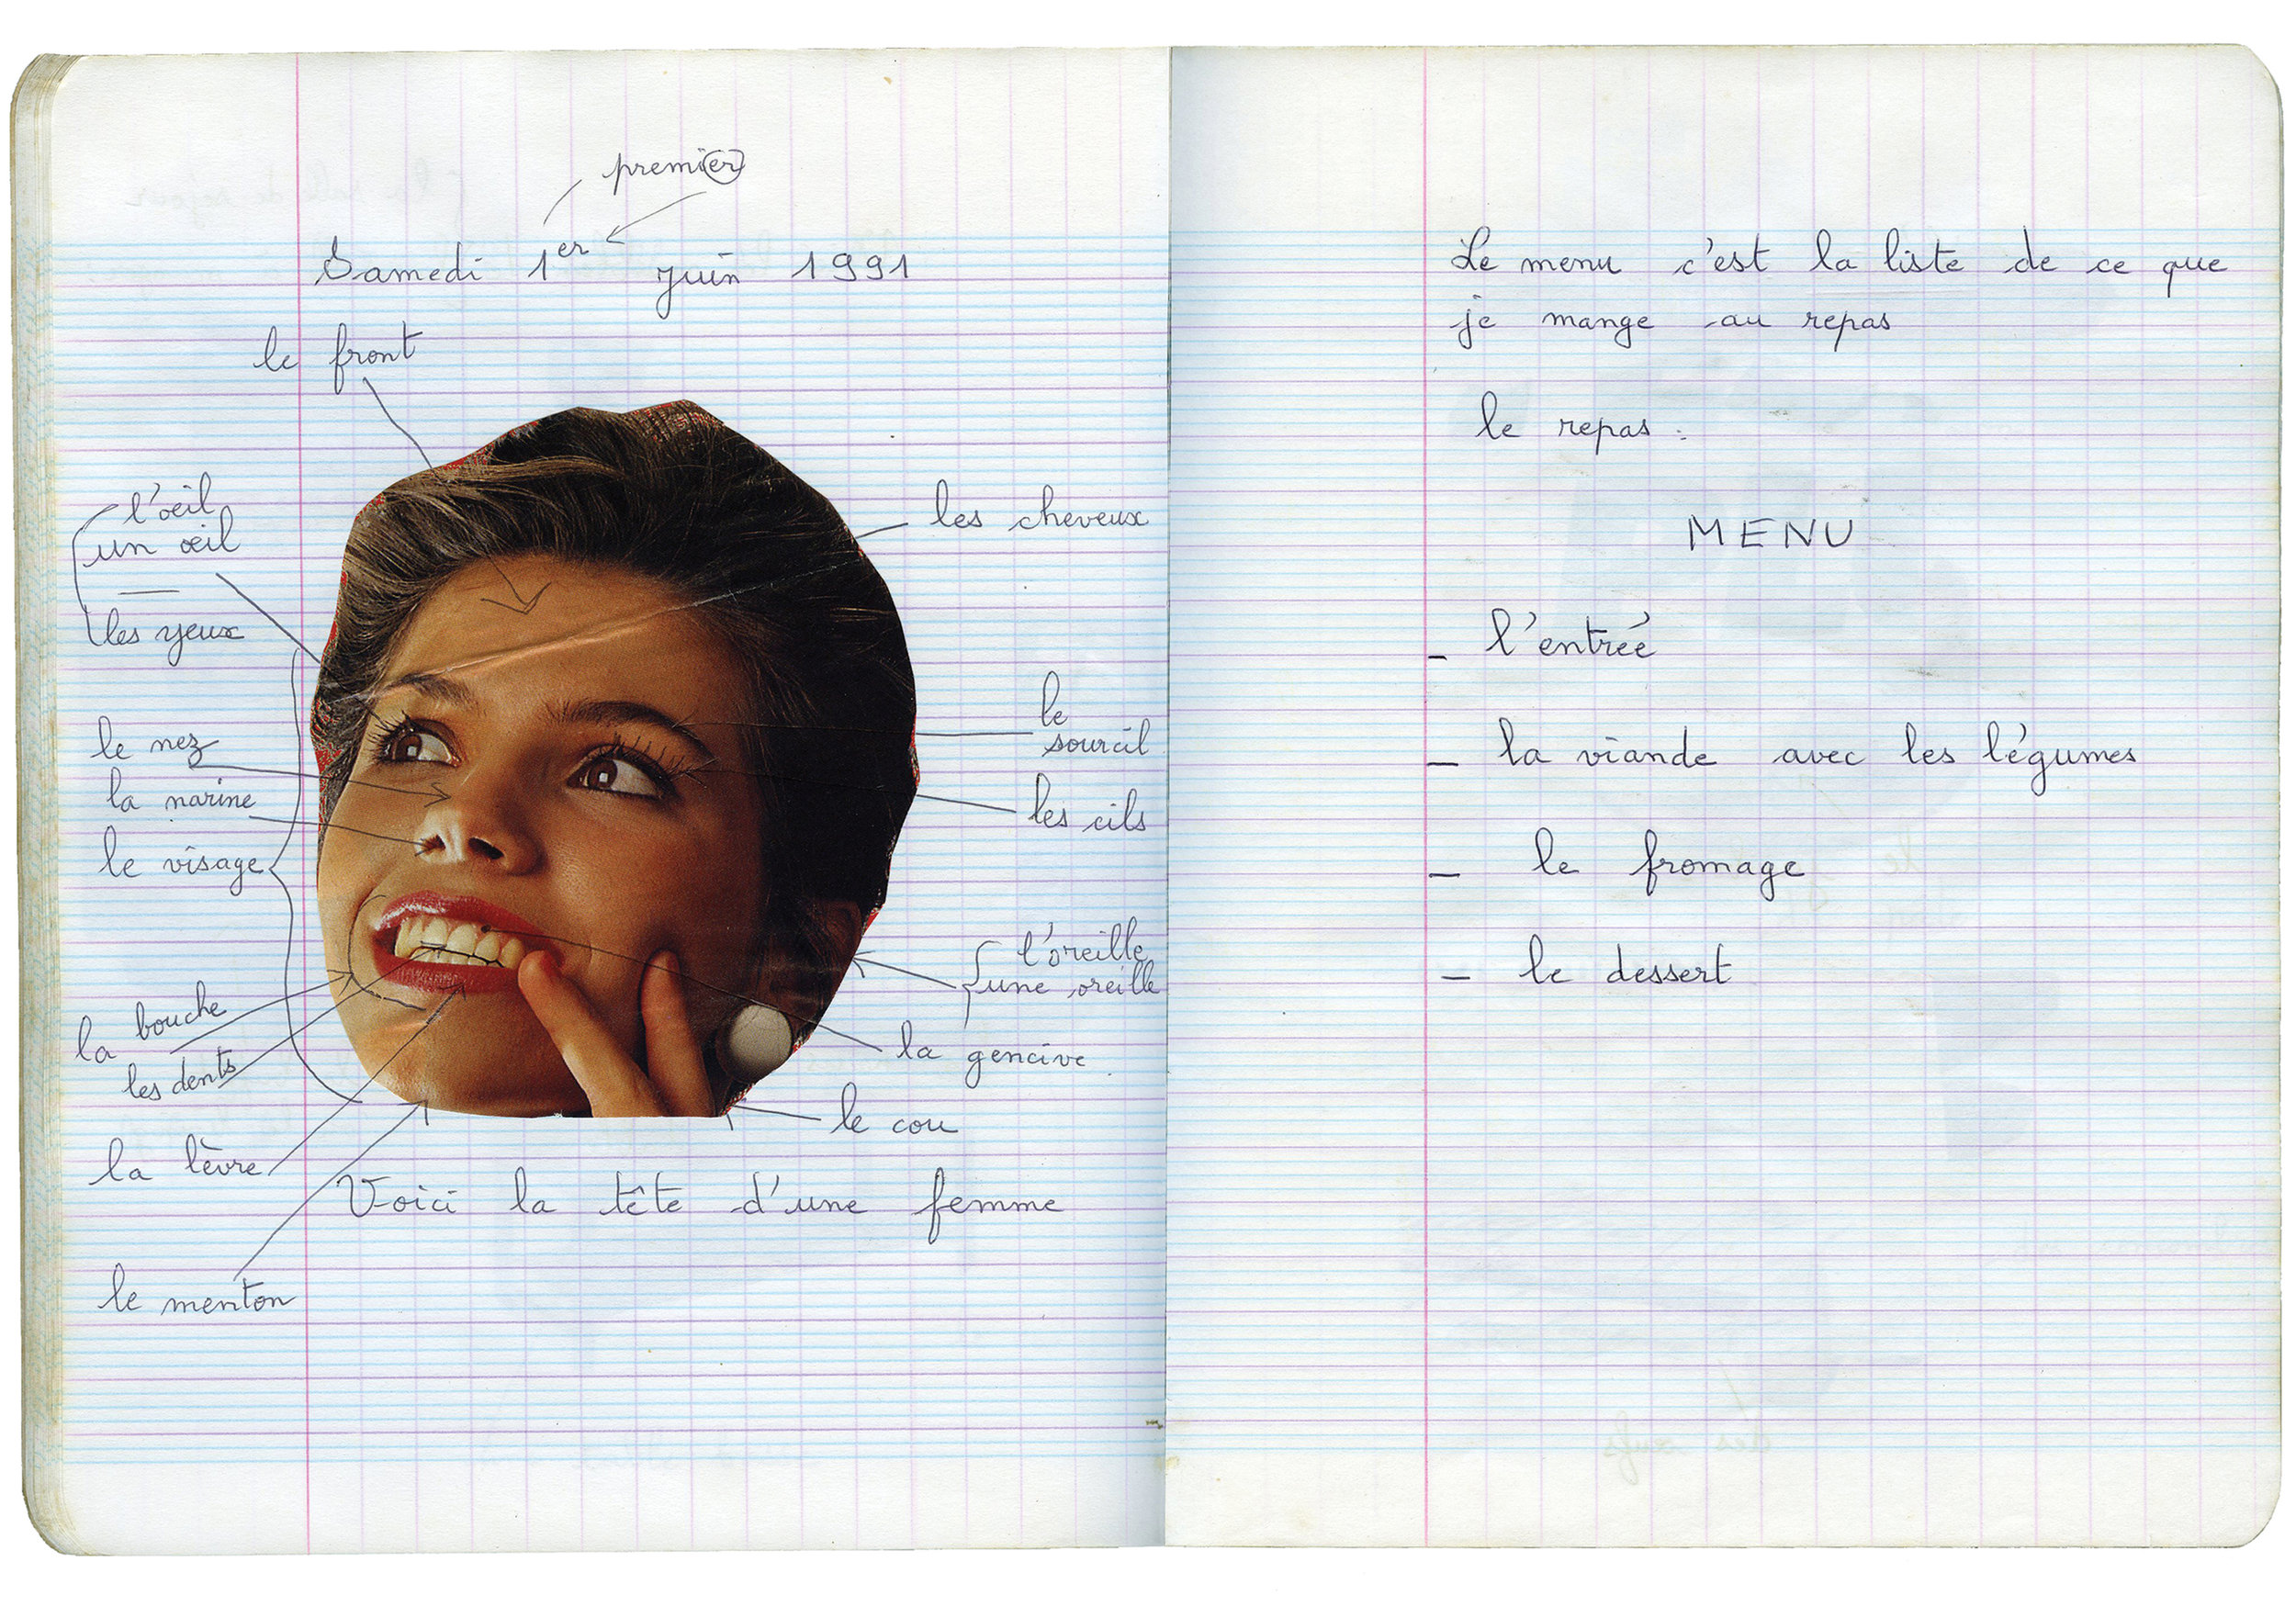 premier
Samedi 1er juin 1991
le front
l'oeil
un œil
les yeux
les cheveux
le
sourcil
le nez
la narine
les cils
le visage
l'oreille
une oreille
la bouche
les dents
la gencive
le cou
la lèvre
Voici la tête d'une femme
le menton
Le menu c'est la liste de ce que
je mange au repas
le repas :
MENU
- l'entrée
- la viande avec les légumes
- le fromage
- le dessert